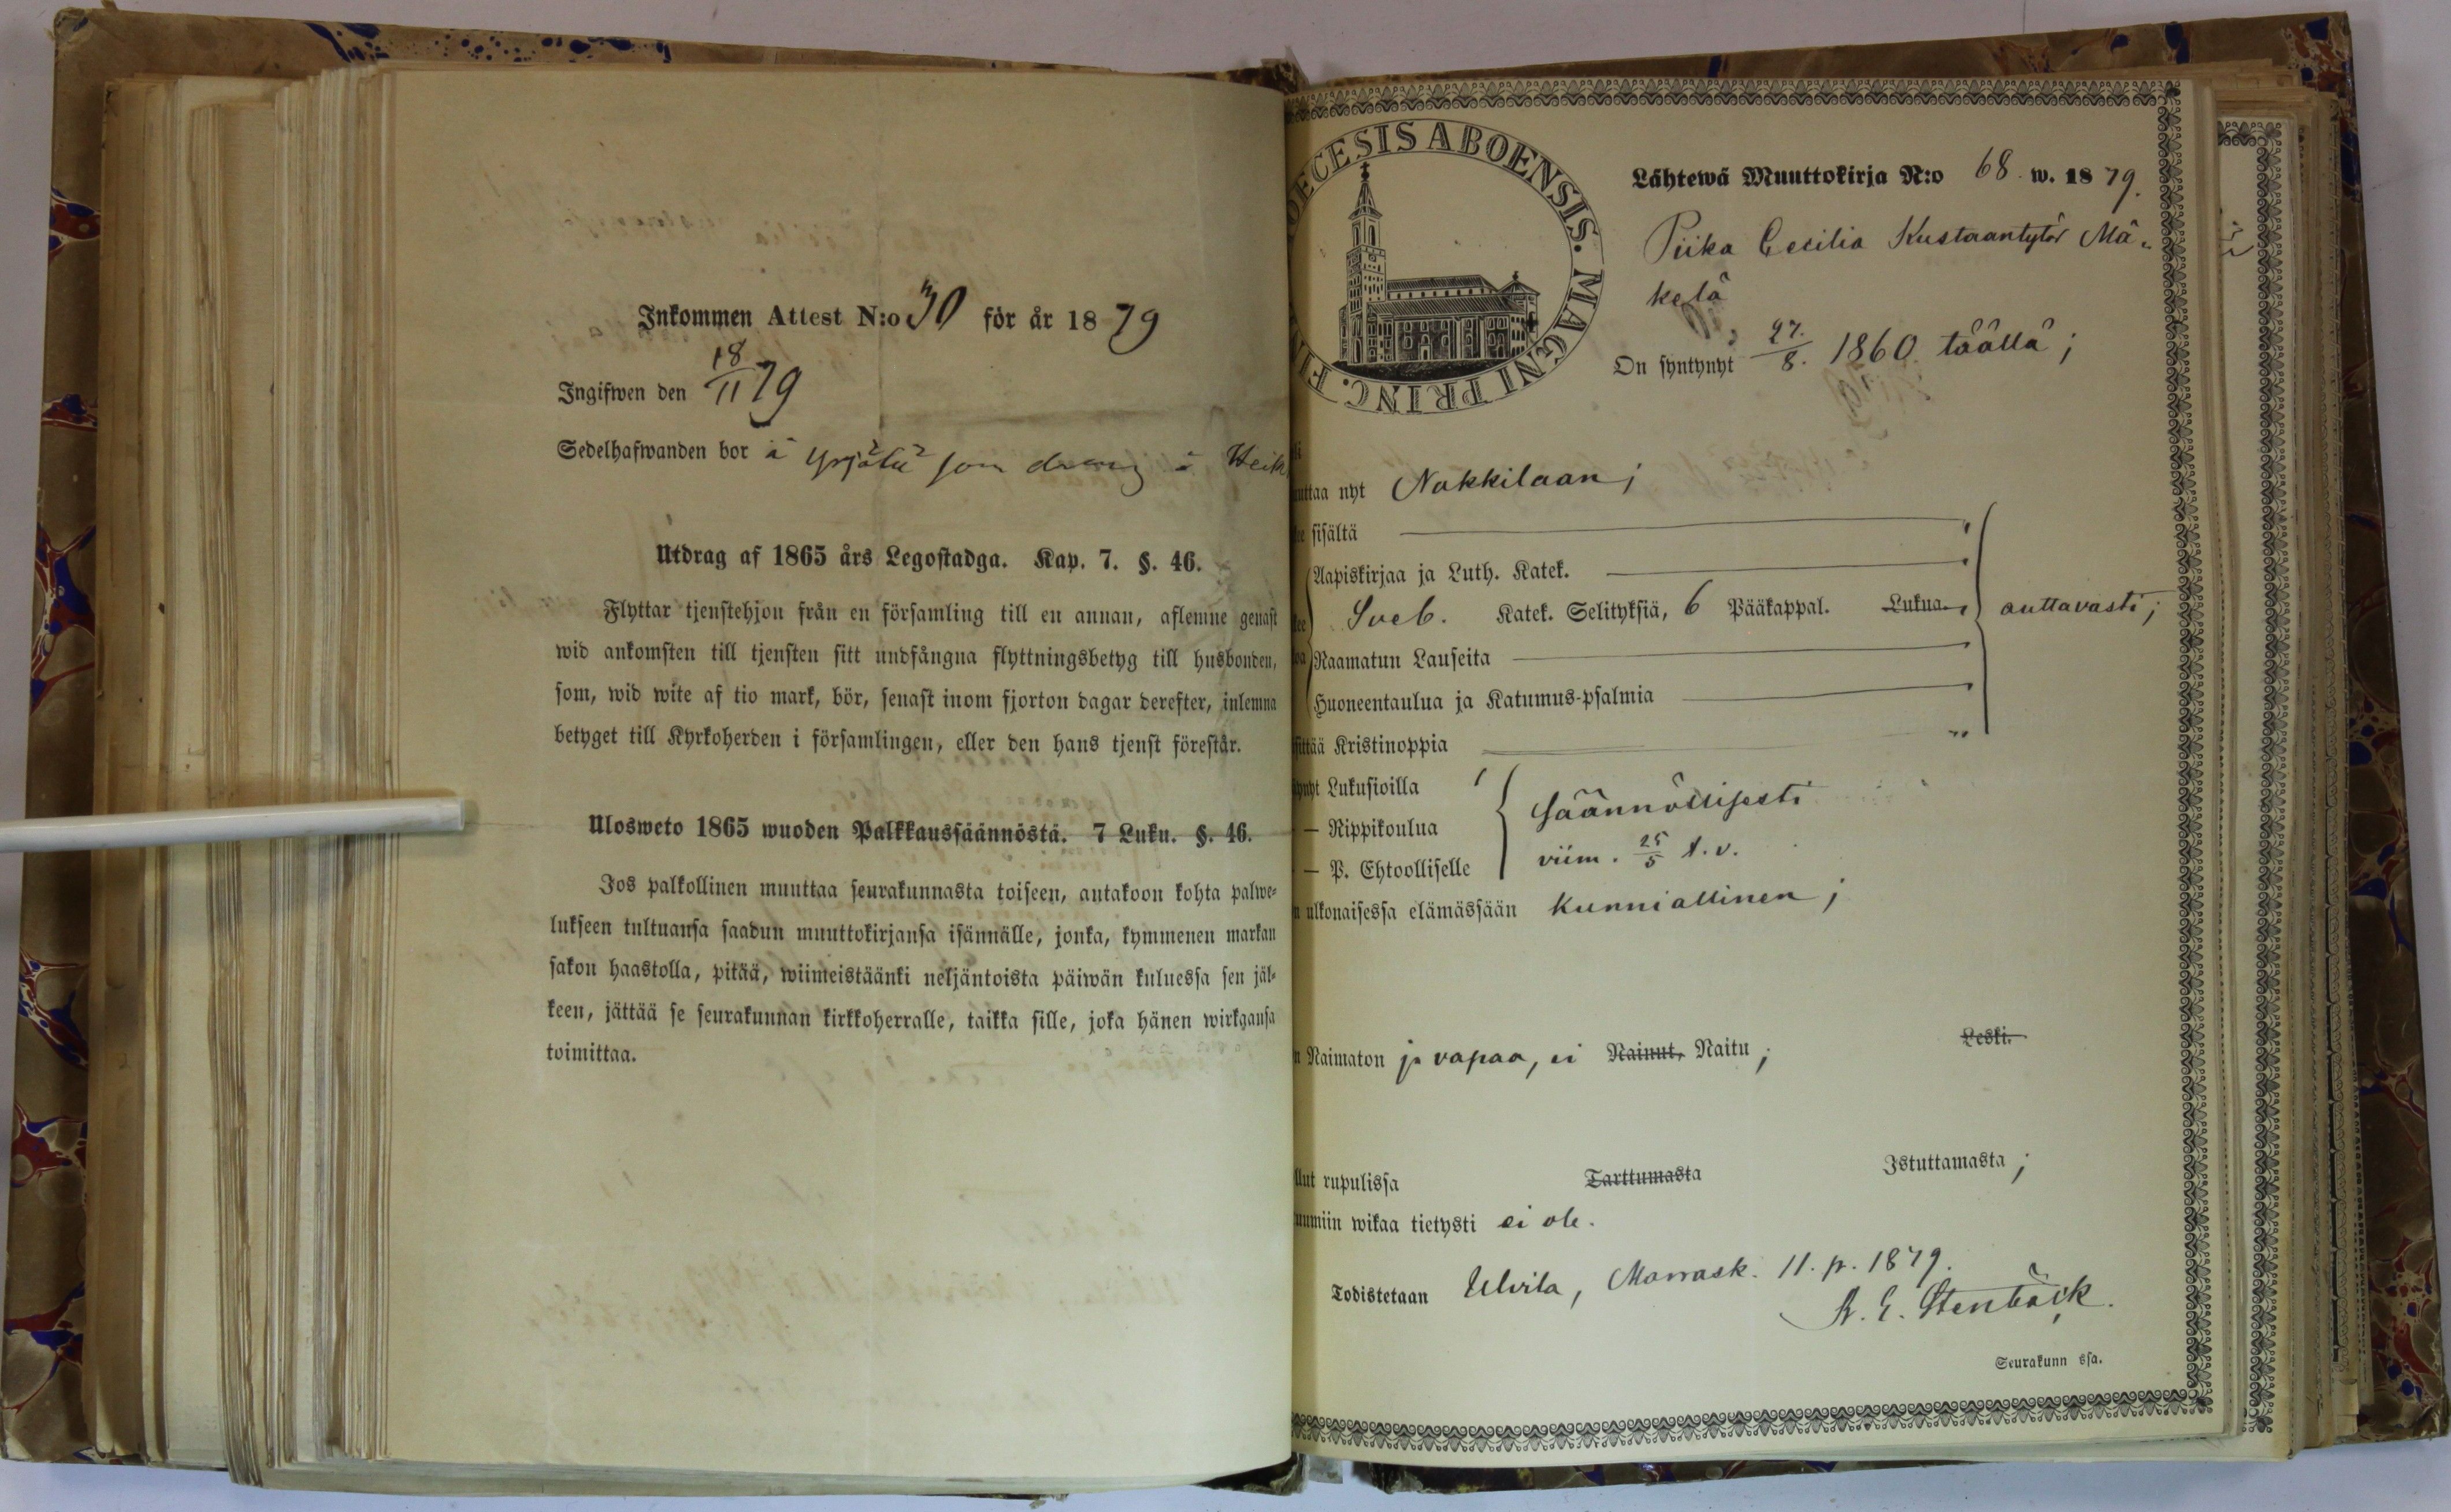 Inkommen Attest N:o 30 för år 1879
Ingifwen den 18/11 79
Sedelhafwanden bor å Yrjälä som dräng i Heik
Utdrag af 1865 års Legostadga. Kap. 7. §. 46.
Flyttar tjenstehjon från en församling till en annan, aflemne genast
wid ankomsten till tjensten sitt undfångna flyttningsbetyg till husbonden,
som, wid wite af tio mark, bör, senast inom fjorton dagar derefter, inlemna
betyget till Kyrkoherden i församlingen, eller den hans tjenst förestår.
Ulosweto 1865 wuoden Palkkaussäännöstä. 7 Luku. §. 46.
Jos palkollinen muuttaa seurakunnasta toiseen, antakoon kohta palwe-
lukseen tultuansa saadun muuttokirjansa isännälle, jonka, kymmenen markan
sakon haastolla, pitää, wiimeistäänki neljäntoista päiwän kuluessa sen jäl-
keen, jättää se seurakunnan kirkkoherralle, taikka sille, joka hänen wirkgansa
toimittaa.
OECESIS ABOENSIS. MAGNI PRINC. FIN
Lähtewä Muuttokirja N:o 68. w. 1879.
Piika Cecilia Kustaantytär Mä-
kelä
On syntynyt 27/8. 1860. täällä;
uttaa nyt Nakkilaan;
sisältä
Aapiskirjaa ja Luth. Katek.
Sveb. Katek. Selityksiä, 6 Pääkappal. Lukua. auttavasti;
Raamatun Lauseita
Huoneentaulua ja Katumus-psalmia
sittää Kristinoppia
ynyt Lukusioilla
— Rippikoulua säännöllisesti
— P. Ehtoolliselle viim. 25/5 t.v.
n ulkonaisessa elämässään kunniallinen;
n Naimaton ja vapaa, ei Nainut, Naitu; Leski.
llut rupulissa Tarttumasta Istuttamasta;
uumiin wikaa tietysti ei ole.
Todistetaan Ulvila, Marrask. 11. p. 1879.
A. E. Stenbäck.
Seurakunn ssa.